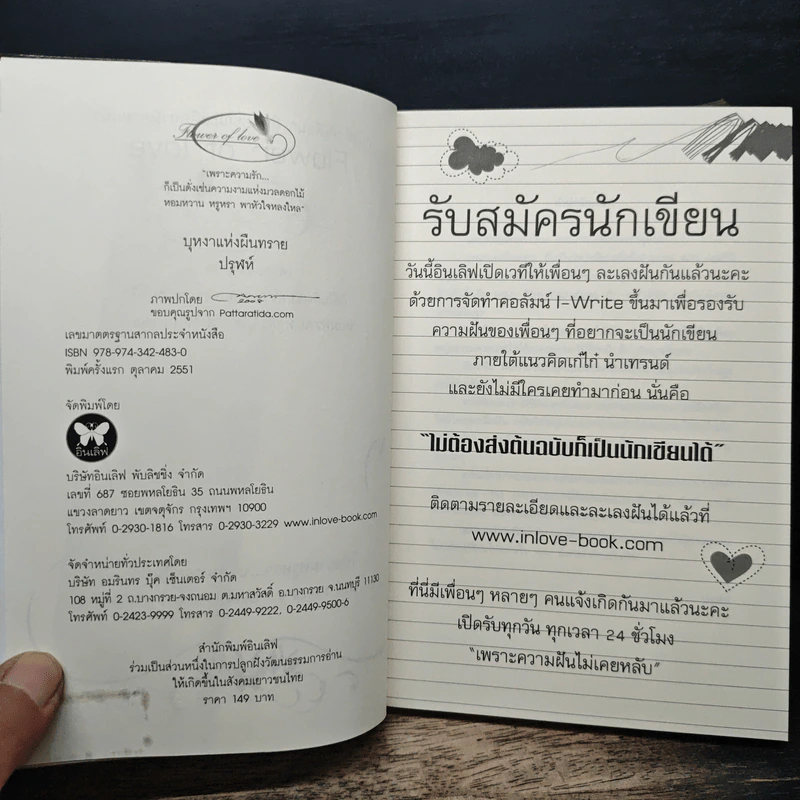 Flower of love
"เพราะความรัก...
ก็เป็นดั่งเช่นความงามแห่งมวลดอกไม้
หอมหวาน หรูหรา พาหัวใจหลงใหล"
บุหงาแห่งผืนทราย
ปรุฬห์
ภาพปกโดย
2008
ขอบคุณรูปจาก Pattaratida.com
เลขมาตรฐานสากลประจำหนังสือ
ISBN 978-974-342-483-0
พิมพ์ครั้งแรก ตุลาคม 2551
จัดพิมพ์โดย
อินเลิฟ
บริษัทอินเลิฟ พับลิชชิ่ง จำกัด
เลขที่ 687 ซอยพหลโยธิน 35 ถนนพหลโยธิน
แขวงลาดยาว เขตจตุจักร กรุงเทพฯ 10900
โทรศัพท์ 0-2930-1816 โทรสาร 0-2930-3229 www.inlove-book.com
จัดจำหน่ายทั่วประเทศโดย
บริษัท อมรินทร บุ๊ค เซ็นเตอร์ จำกัด
108 หมู่ที่ 2 ถ.บางกรวย-จงถนอม ต.มหาสวัสดิ์ อ.บางกรวย จ.นนทบุรี 11130
โทรศัพท์ 0-2423-9999 โทรสาร 0-2449-9222, 0-2449-9500-6
สำนักพิมพ์อินเลิฟ
ร่วมเป็นส่วนหนึ่งในการปลูกฝังวัฒนธรรมการอ่าน
ให้เกิดขึ้นในสังคมเยาวชนไทย
ราคา 149 บาท
รับสมัครนักเขียน
วันนี้อินเลิฟเปิดเวทีให้เพื่อนๆ ละเลงฝันกันแล้วนะคะ
ด้วยการจัดทำคอลัมน์ I-Write ขึ้นมาเพื่อรองรับ
ความฝันของเพื่อนๆ ที่อยากจะเป็นนักเขียน
ภายใต้แนวคิดเก๋ไก๋ นำเทรนด์
และยังไม่มีใครเคยทำมาก่อน นั่นคือ
"ไม่ต้องส่งต้นฉบับก็เป็นนักเขียนได้"
ติดตามรายละเอียดและละเลงฝันได้แล้วที่
www.inlove-book.com
ที่นี่มีเพื่อนๆ หลายๆ คนแจ้งเกิดกันมาแล้วนะคะ
เปิดรับทุกวัน ทุกเวลา 24 ชั่วโมง
"เพราะความฝันไม่เคยหลับ"